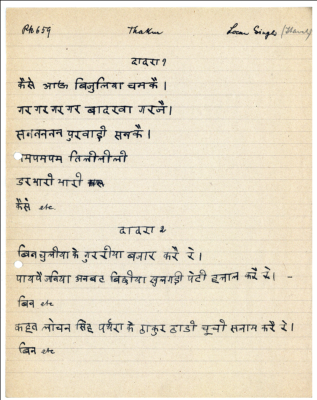 Ph 659 Thakur Locan Singh
दादरा १
कैसे आऊ बिजुलिया चमकै।
गर गर गर गर बादरवा गरजै।
सनतननन पुरवाही सनकै।
रमपमपम तिलीनीली
डर भारी भारी
कैसे etc
दादरा 2
बिन चुलीया के गुररीया बजार करै रे।
पायपैजनिया अनबट बिछीया पेटी करै रे।
बिन etc
कहत लोचन सिंह पथैरा के ठाकुर ठाडी चूची सनाम करै रे।
बिन etc